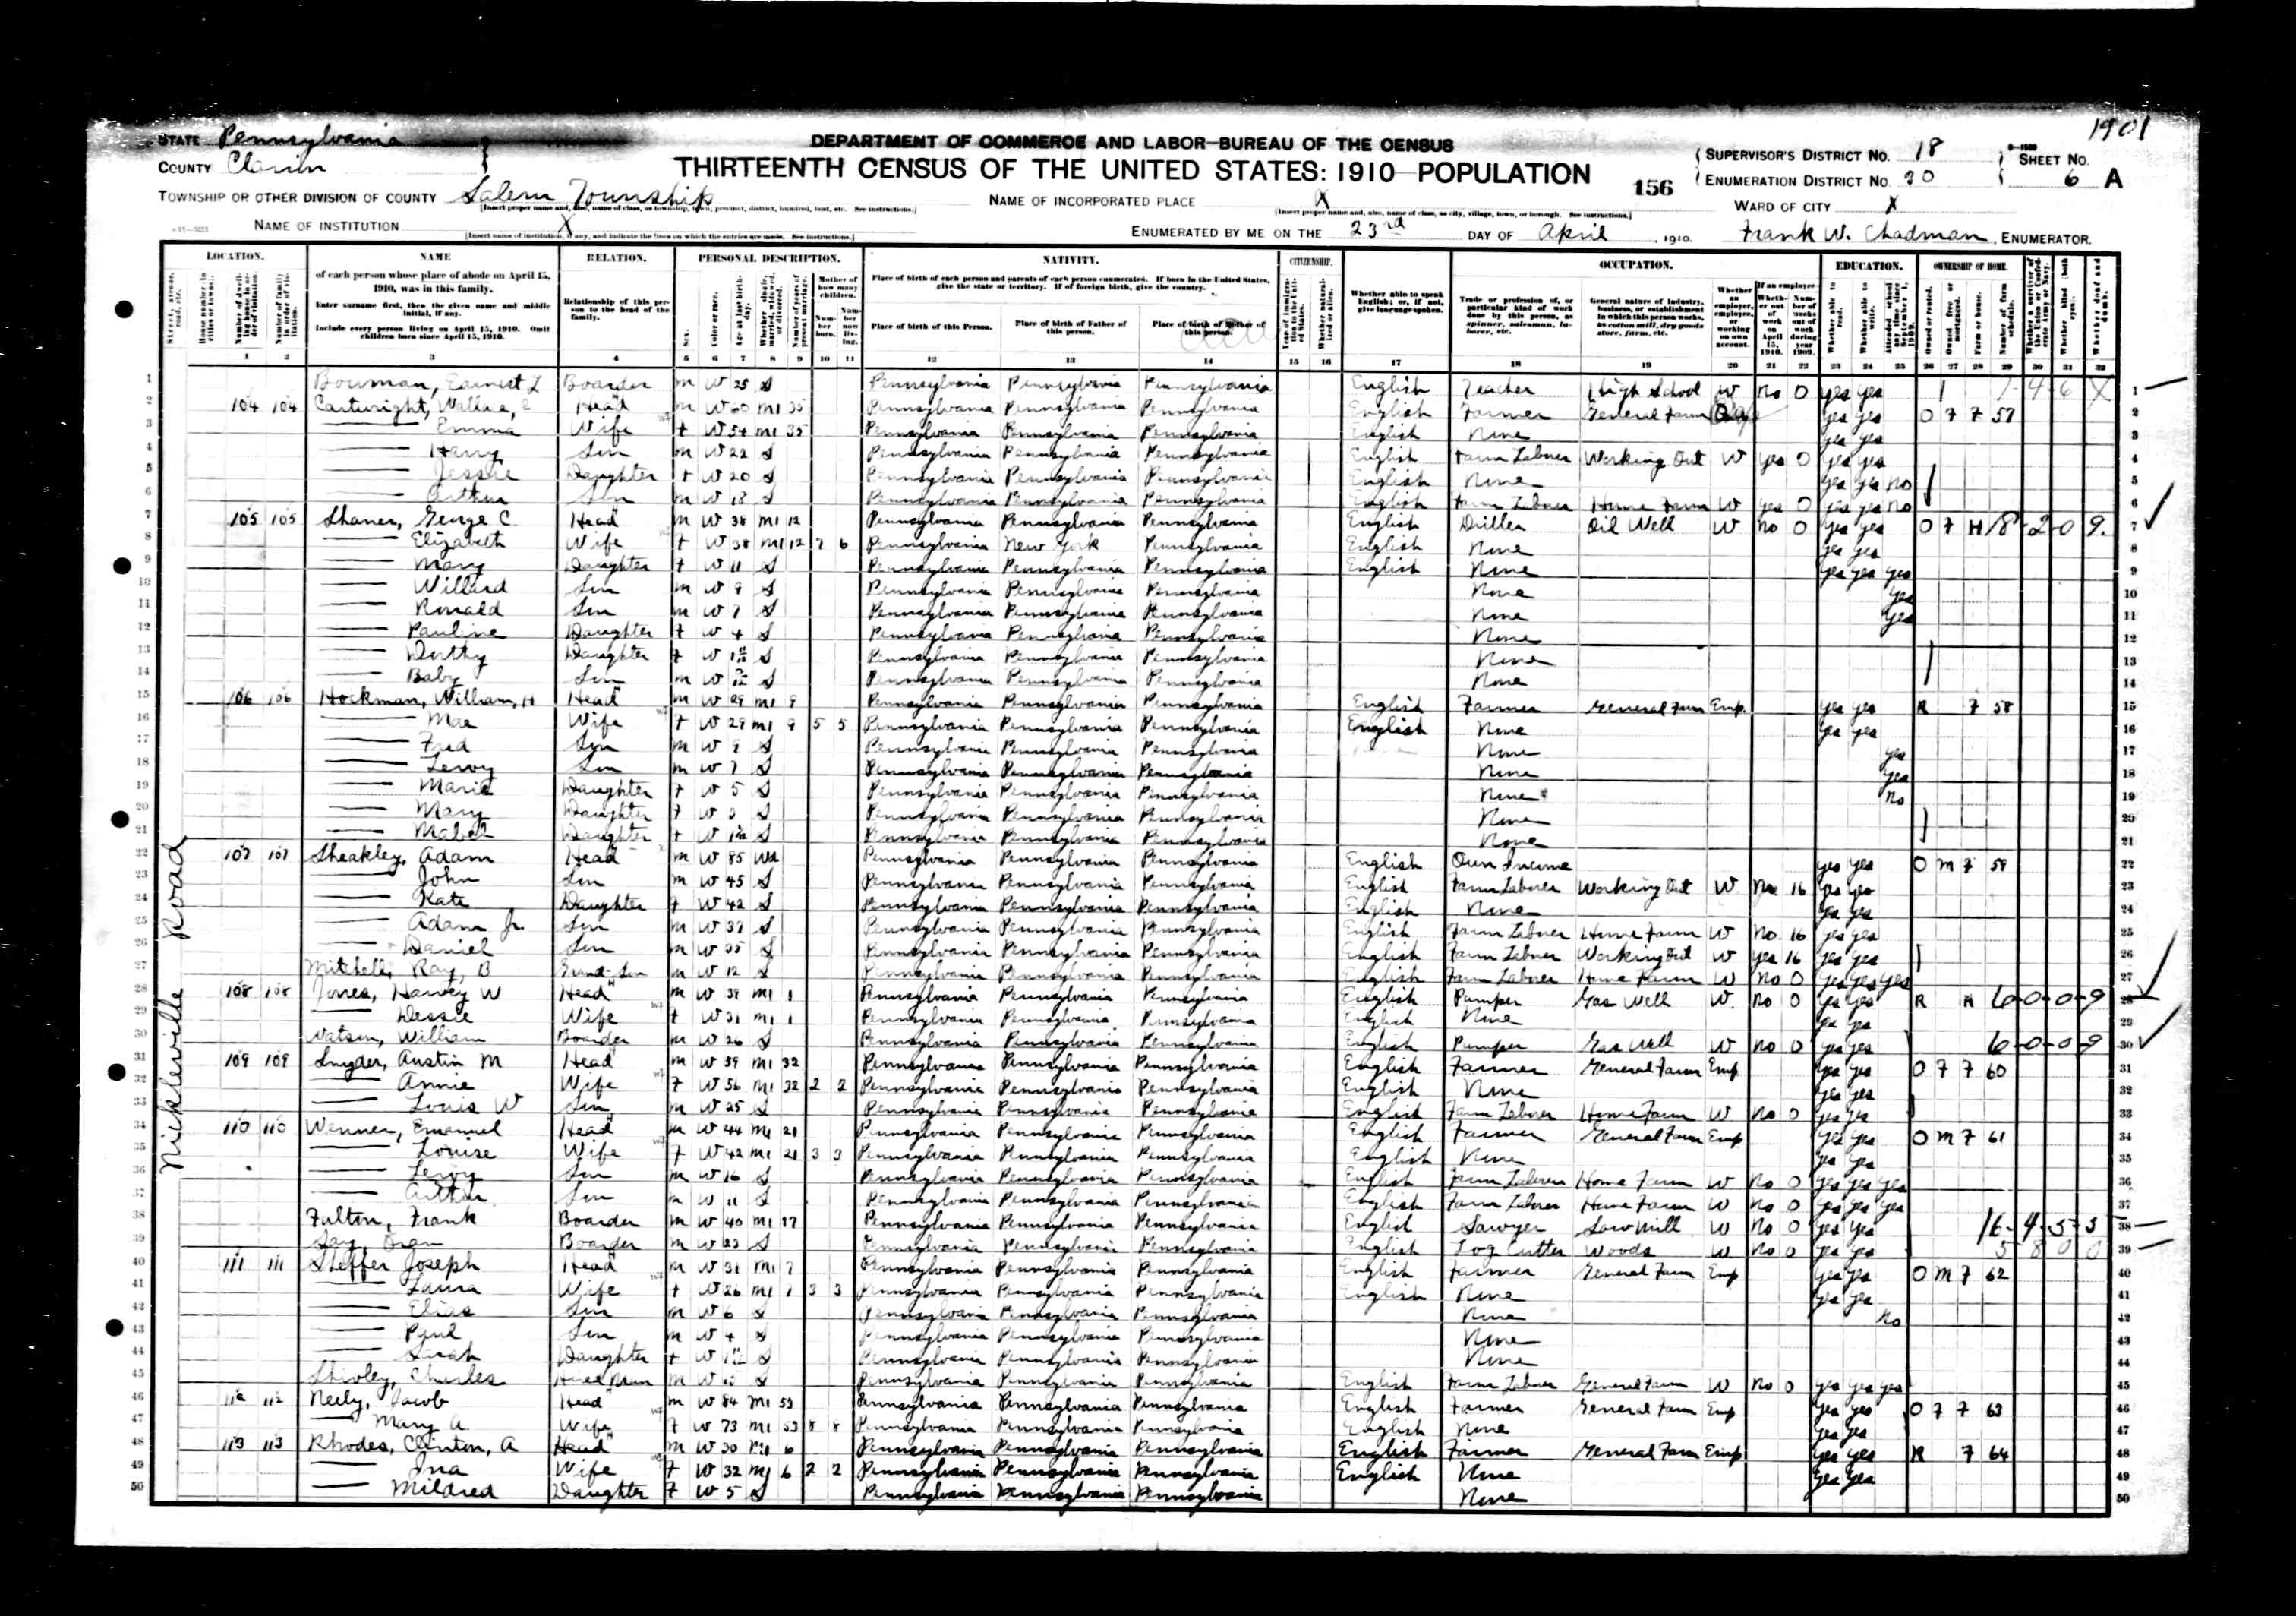 1901
STATE Pennsylvania
DEPARTMENT OF COMMERCE AND LABOR—BUREAU OF THE CENSUS
COUNTY Clarion
THIRTEENTH CENSUS OF THE UNITED STATES: 1910 POPULATION
156
SUPERVISOR'S DISTRICT No. 18
ENUMERATION DISTRICT No. 20
SHEET No. 6 A
TOWNSHIP OR OTHER DIVISION OF COUNTY Salem Township
NAME OF INCORPORATED PLACE X
WARD OF CITY X
NAME OF INSTITUTION X
ENUMERATED BY ME ON THE 23rd DAY OF April, 1910. Frank W. Chadman, ENUMERATOR.
LOCATION. NAME RELATION. PERSONAL DESCRIPTION. NATIVITY. CITIZENSHIP. OCCUPATION. EDUCATION. OWNERSHIP OF HOME.
of each person whose place of abode on April 15, 1910, was in this family.
Enter surname first, then the given name and middle initial, if any.
Include every person living on April 15, 1910. Omit children born since April 15, 1910.
Relationship of this person to the head of the family.
Place of birth of each person and parents of each person enumerated. If born in the United States, give the state or territory. If of foreign birth, give the country.
Place of birth of this Person. Place of birth of Father of this person. Place of birth of Mother of this person.
Whether able to speak English; or, if not, give language spoken.
Trade or profession of, or particular kind of work done by this person, as spinner, salesman, laborer, etc.
General nature of industry, business, or establishment in which this person works, as cotton mill, dry goods store, farm, etc.
1 2 3 4 5 6 7 8 9 10 11 12 13 14 15 16 17 18 19 20 21 22 23 24 25 26 27 28 29 30 31 32
Nickleville Road
1 Bowman, Earnest L Boarder m W 25 S Pennsylvania Pennsylvania Pennsylvania English Teacher High School W no 0 yes yes
2 104 104 Cartwright, Wallace, C Head m W 60 m1 35 Pennsylvania Pennsylvania Pennsylvania English Farmer General Farm yes yes O F F 57
3 Emma Wife f W 54 m1 35 Pennsylvania Pennsylvania Pennsylvania English None yes yes
4 Harry Son m W 22 S Pennsylvania Pennsylvania Pennsylvania English Farm Laborer Working Out W yes 0 yes yes
5 Jessie Daughter f W 20 S Pennsylvania Pennsylvania Pennsylvania English None yes yes no
6 Arthur Son m W 18 S Pennsylvania Pennsylvania Pennsylvania English Farm Laborer Home Farm W yes 0 yes yes no
7 105 105 Shaner, George C Head m W 38 m1 12 Pennsylvania Pennsylvania Pennsylvania English Driller Oil Well W no 0 yes yes O F H 8-2-0 9
8 Elizabeth Wife f W 38 m1 12 7 6 Pennsylvania New York Pennsylvania English None yes yes
9 Mary Daughter f W 11 S Pennsylvania Pennsylvania Pennsylvania English None yes yes yes
10 Willard Son m W 9 S Pennsylvania Pennsylvania Pennsylvania None yes
11 Ronald Son m W 7 S Pennsylvania Pennsylvania Pennsylvania None yes
12 Pauline Daughter f W 4 S Pennsylvania Pennsylvania Pennsylvania None
13 Dorthy Daughter f W S Pennsylvania Pennsylvania Pennsylvania None
14 Baby Son m W S Pennsylvania Pennsylvania Pennsylvania None
15 106 106 Hockman, William, H Head m W 29 m1 9 Pennsylvania Pennsylvania Pennsylvania English Farmer General Farm Emp yes yes R F 58
16 Mae Wife f W 29 m1 9 5 5 Pennsylvania Pennsylvania Pennsylvania English None yes yes
17 Fred Son m W S Pennsylvania Pennsylvania Pennsylvania None yes
18 Leroy Son m W 7 S Pennsylvania Pennsylvania Pennsylvania None yes
19 Marie Daughter f W 5 S Pennsylvania Pennsylvania Pennsylvania None no
20 Mary Daughter f W 3 S Pennsylvania Pennsylvania Pennsylvania None
21 Mabel Daughter f W S Pennsylvania Pennsylvania Pennsylvania None
22 107 107 Sheakley, Adam Head m W 85 Wd Pennsylvania Pennsylvania Pennsylvania English Own Income yes yes O M F 59
23 John Son m W 45 S Pennsylvania Pennsylvania Pennsylvania English Farm Laborer Working Out W 16 yes yes
24 Kate Daughter f W 42 S Pennsylvania Pennsylvania Pennsylvania English None yes yes
25 Adam Jr. Son m W 37 S Pennsylvania Pennsylvania Pennsylvania English Farm Laborer Home Farm W no 16 yes yes
26 Daniel Son m W 35 S Pennsylvania Pennsylvania Pennsylvania English Farm Laborer Working Out W yes 16 yes yes
27 Mitchell, Ray, B Grand-Son m W 12 S Pennsylvania Pennsylvania Pennsylvania English Farm Laborer Home Farm W no 0 yes yes yes
28 108 108 Jones, Harvey W Head m W 39 m1 1 Pennsylvania Pennsylvania Pennsylvania English Pumper Gas Well W no 0 yes yes R H 6-0-0-9
29 Dessie Wife f W 31 m1 1 Pennsylvania Pennsylvania Pennsylvania English None yes yes
30 Watson, William Boarder m W 26 S Pennsylvania Pennsylvania Pennsylvania English Pumper Gas Well W no 0 yes yes 6-0-0-9
31 109 109 Snyder, Austin M Head m W 59 m1 32 Pennsylvania Pennsylvania Pennsylvania English Farmer General Farm Emp yes yes O F F 60
32 Annie Wife f W 56 m1 32 2 2 Pennsylvania Pennsylvania Pennsylvania English None yes yes
33 Louis W Son m W 25 S Pennsylvania Pennsylvania Pennsylvania English Farm Laborer Home Farm W no 0 yes yes
34 110 110 Wenner, Emanuel Head m W 44 m1 21 Pennsylvania Pennsylvania Pennsylvania English Farmer General Farm Emp yes yes O M F 61
35 Louise Wife f W 42 m1 21 3 3 Pennsylvania Pennsylvania Pennsylvania English None yes yes
36 Leroy Son m W 16 S Pennsylvania Pennsylvania Pennsylvania English Farm Laborer Home Farm W no 0 yes yes yes
37 Son m W 11 S Pennsylvania Pennsylvania Pennsylvania English Farm Laborer Home Farm W no 0 yes yes yes
38 Fulton, Frank Boarder m W 40 m1 17 Pennsylvania Pennsylvania Pennsylvania English Sawyer Saw Mill W no 0 yes yes 16-4-5-3
39 Boarder m W 23 S Pennsylvania Pennsylvania Pennsylvania English Log Cutter Woods W no 0 yes yes 5 8 0 0
40 111 111 Sheffer Joseph Head m W 31 m1 7 Pennsylvania Pennsylvania Pennsylvania English Farmer General Farm Emp yes yes O M F 62
41 Laura Wife f W 26 m1 7 3 3 Pennsylvania Pennsylvania Pennsylvania English None yes yes
42 Elias Son m W 6 S Pennsylvania Pennsylvania Pennsylvania None no
43 Paul Son m W 4 S Pennsylvania Pennsylvania Pennsylvania None
44 Sarah Daughter f W S Pennsylvania Pennsylvania Pennsylvania None
45 Shivley, Charles Hired Man m W S Pennsylvania Pennsylvania Pennsylvania English Farm Laborer General Farm W no 0 yes yes yes
46 112 112 Neely, Jacob Head m W 84 m1 53 Pennsylvania Pennsylvania Pennsylvania English Farmer General Farm Emp yes yes O F F 63
47 Mary A Wife f W 73 m1 53 8 8 Pennsylvania Pennsylvania Pennsylvania English None yes yes
48 113 113 Rhodes, Clinton, A Head m W 30 m1 6 Pennsylvania Pennsylvania Pennsylvania English Farmer General Farm Emp yes yes R F 64
49 Ina Wife f W 32 m1 6 2 2 Pennsylvania Pennsylvania Pennsylvania English None yes yes
50 Mildred Daughter f W 5 S Pennsylvania Pennsylvania Pennsylvania None